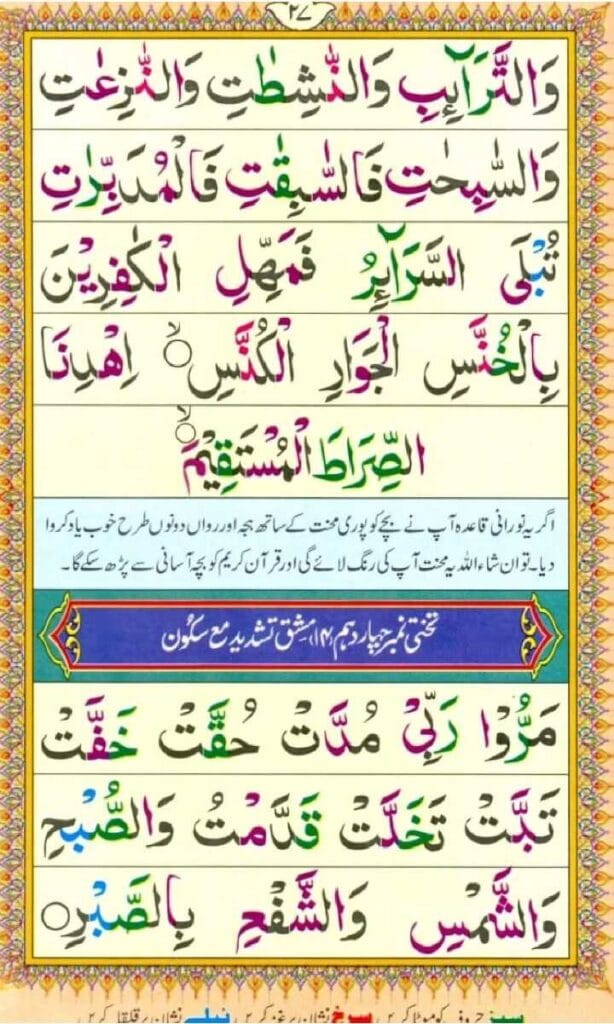 ٢٧
وَالتَّرَآئِبِ وَالنّٰشِطٰتِ وَالنّٰزِعٰتِ
وَالسّٰبِحٰتِ فَالسّٰبِقٰتِ فَالْمُدَبِّرٰتِ
تُبْلَى السَّرَآئِرُ فَمَهِّلِ الْكٰفِرِيْنَ
بِالْخُنَّسِ الْجَوَارِ الْكُنَّسِ ۙ اِهْدِنَا
الصِّرَاطَ الْمُسْتَقِيْمَ ۙ
اگر یہ نورانی قاعدہ آپ نے بچے کو پوری محنت کے ساتھ ہجہ اور رواں دونوں طرح خوب یاد کروا
دیا۔ تو ان شاء اللہ یہ محنت آپ کی رنگ لائے گی اور قرآن کریم کو بچہ آسانی سے پڑھ سکے گا۔
تختی نمبر چہار دہم (۱۴) مشق تشدید مع سکُون
مَرُّوْا رَبِّيْ مُدَّتْ حُقَّتْ خَفَّتْ
تَبَّتْ تَخَلَّتْ قَدَّمْتُ وَالصُّبْحِ
وَالشَّمْسِ وَالشَّفْعِ بِالصَّبْرِ ○
سبز حروف کو موٹا کریں سرخ نشان پر غنہ کریں نیلے نشان پر قلقلہ کریں